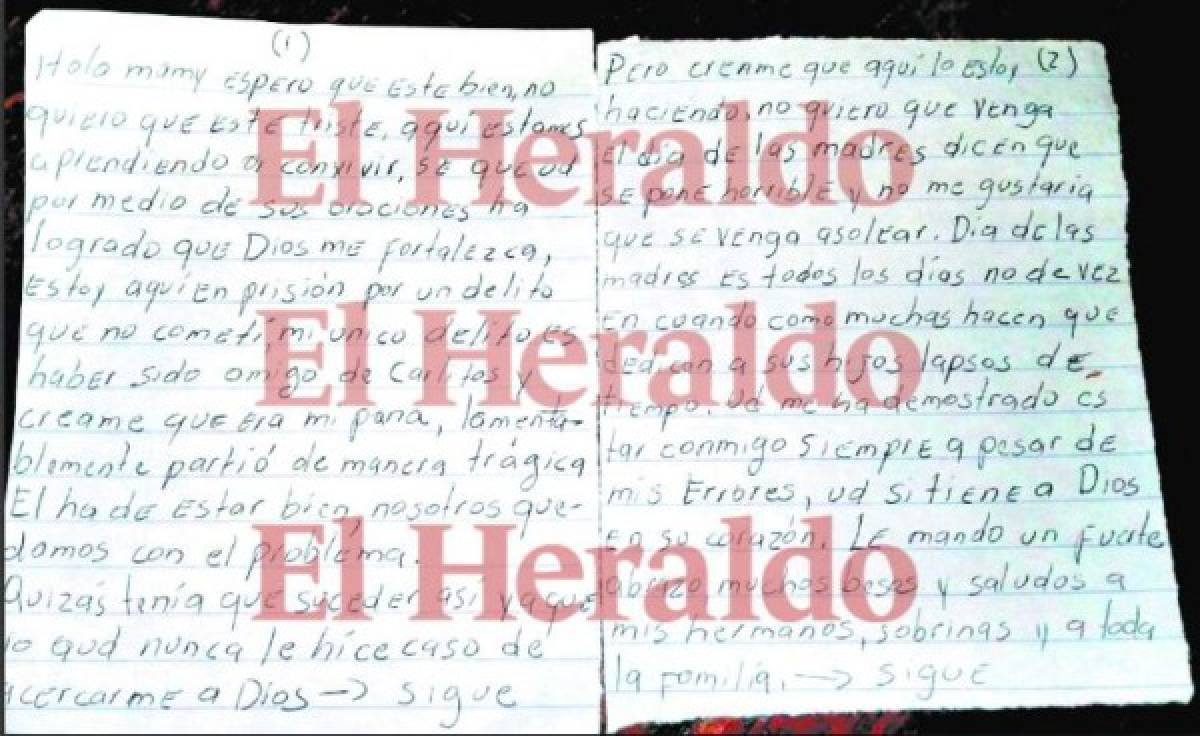 (1)
Hola mamy espero que este bien, no
quiero que este triste, aqui estamos
aprendiendo a convivir, se que ud
por medio de sus oraciones ha
logrado que Dios me fortalezca,
Estoy aqui en prisión por un delito
que no cometí, mi unico delito es
haber sido amigo de Carlitos y
creame que era mi pana, lamenta-
blemente partió de manera trágica
El ha de estar bien, nosotros que-
damos con el problema.
Quizás tenía que suceder asi ya que
yo a ud nunca le hice caso de
acercarme a Dios → sigue
(2)
Pero creame que aqui lo estoy
haciendo, no quiero que venga
el dia de las madres dicen que
se pone horrible y no me gustaria
que se venga asolear. Dia de las
madres es todos los días no de vez
en cuando como muchas hacen que
dedican a sus hijos lapsos de
tiempo. Ud me ha demostrado es
tar conmigo siempre a pesar de
mis Errores, ud si tiene a Dios
en su corazón. Le mando un fuerte
abrazo, muchos besos y saludos a
mis hermanos, sobrinas y a toda
la familia. → sigue
El Heraldo
El Heraldo
El Heraldo